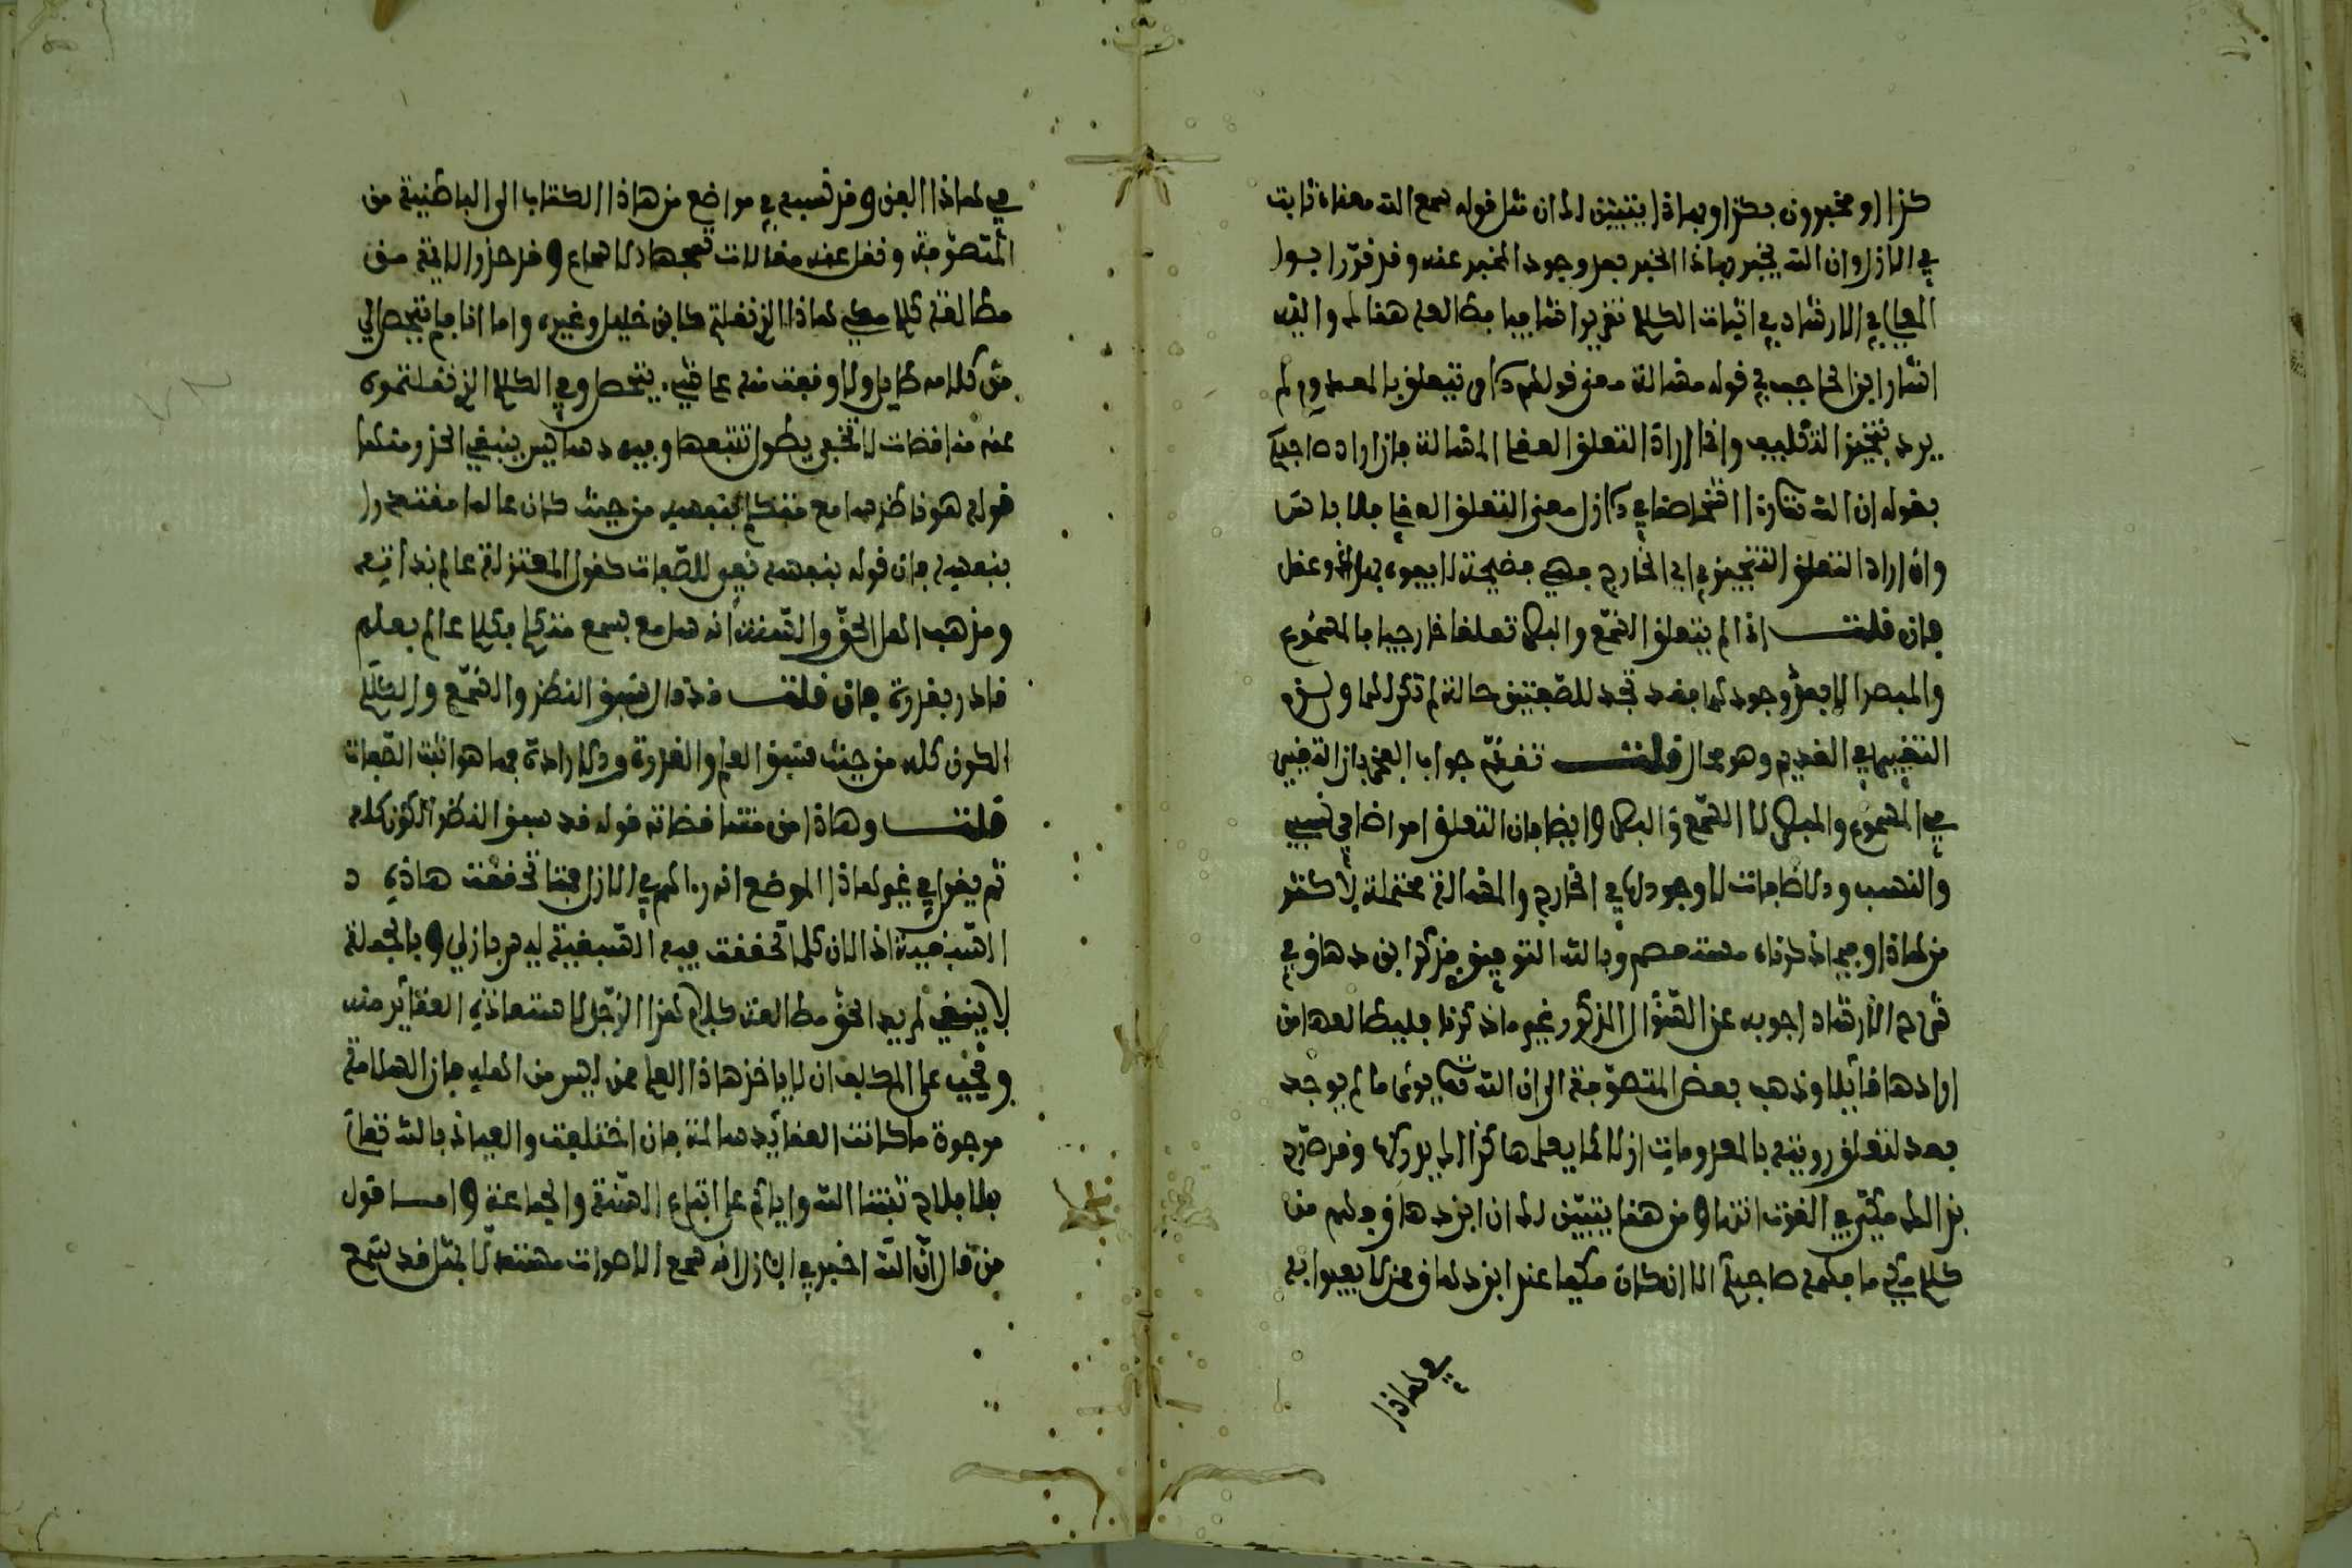 كذا او مخبرون بكذا وبهاذا يتبين لك ان مثل قوله سمع الله معناه ثابت
في الازل وان الله يخبر بهاذا الخبر بعد وجود المخبر عنه وقد قرر ابو
المعالي في الارشاد في اثبات الكلام تقريرا شافيا فطالعه هنالك والله
اشار ابن الحاجب في قوله مسالة معنى قولهم الامر يتعلق بالمعدوم لم
يرد تنجيز التكليف وانما اراد التعلق العقلي المسالة فان اراد صاحبك
بقوله ان الله تعالى الازل معنى التعلق العقلي فلا باس
وان اراد التعلق التنجيزي اي الخارج فهي فضيحة لا يفوه بها ذو عقل
فان قلت اذا لم يتعلق السمع والبصر تعلقا خارجيا بالمسموع
والمبصر الا بعد وجودهما فقد تجدد للصفتين حالة لم تكن لهما ولزم
التغيير في القديم وهو محال قلت تقدم جواب الفخر بان التغيير
في المسموع والمبصر لا السمع والبصر وايضا فان التعلق امر اضافي نسبي
والنسب والاضافات لا وجود لها في الخارج والمسالة محتملة لاكثر
من هاذا وفيما ذكرناه مستعصم وبالله التوفيق وذكر ابن دهاق في
شرح الارشاد اجوبة عن السؤال المذكور غير ما ذكرنا فليطالعها من
ارادها قائلا وذهب بعض المتصوفة الى ان الله تعالى يرى ما لم يوجد
بعد لتعلق رؤيته بالمعدومات ازلا كما يعلمها كذا لك يدركها وقد صرح
بذالك مكي في القوت انتهى ومن هنا يتبين لك ان ابن دهاق فهم من
كلام مكي ما فهمه صاحبك الا ان كان مكيا عند ابن دهاق ممن لا يعبا به
في هاذا
في هاذا الفن وقد نسبه في مواضع من هاذا الكتاب الى الباطنية من
المتصوفة ونقل عنه مقالات تمجها الاسماع وقد حذر الايمة من
مطالعة كلام مكي هاذا الذي نقلته كابن خليل وغيره واما انا فلم يتحصل لي
من كلامه طايل ولا وقفت منه على شيء يتحصل وفي الكلام الذي نقلتموه
عنه مناقضات لا تخفى يطول تتبعها وفيه دسائس ينبغي الحذر منها
قوله هو ناظر سامع متكلم بنفسه من حيث كان عالما مقتدرا
بنفسه فان قوله بنفسه نفي للصفات كقول المعتزلة عالم بذاته
ومذهب اهل الحق والسنة انه سامع بسمع متكلم بكلام عالم بعلم
قادر بقدرة فان قلت سبق النظر والسمع والكلام
الكون كله من حيث سبق العلم والقدرة والارادة فها هو اثبت الصفات
قلت وهاذا من متناقضاته قوله قد سبق النظر الكون كله
ثم يقول في غير هاذا الموضع انه راهم في الازل فمتى تحققت هاذه
السبقية اذ الان كلما تحققت فيه السبقية ليس بازلي وبالجملة
لا ينبغي لمريد الحق مطالعة كلام هذا الرجل لاستعاذة العقائد منه
ويجب على المكلف ان لا ياخذ هاذا العلم ممن ليس من اهله فان السلامة
مرجوة ما كانت العقائد سالمة فان اختلفت والعياذ بالله تعالى
فلا فلاح ثبتنا الله واياكم على اتباع السنة والجماعة واما قول
من قال ان الله اخبر في الازل انه سمع الاصوات مستدلا بمثل قد سمع